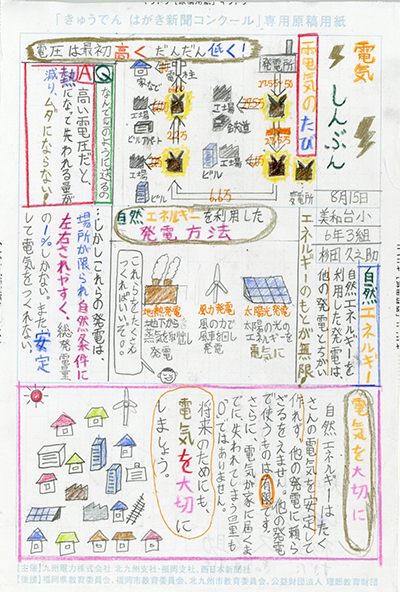 「きゅうでん はがき新聞コンクール」専用原稿用紙
電気
しんぶん
8月15日
美和台小
6年3組
電気のたび
電圧は最初高くだんだん低く!
発電所
変電所
工場
工場
鉄道
ビル
電柱
家など
工場
ビル
6.6万
Q
なんでこのように送るの
A
高い電圧だと、
熱になって失われる量が
減り、ムダにならない!
自然エネルギーを利用した
発電方法
太陽光発電
太陽の光の
エネルギーを
電気に
風力発電
風の力で
風車を回し
発電
地熱発電
地下から
発電
これらをたくさん
つくればいいぞ!
自然エネルギー
自然エネルギーを
利用した発電は
他の発電とちがい
エネルギーのもとが無限
…しかしこれらの発電は、
場所が限られ、自然条件に
左右されやすく、総発電量
の1%しかない。また安定
して電気をつくれない。
電気を大切に
自然エネルギーは たく
さんの電気を安定して
作れず、他の発電に頼ら
ざるをえません。他の発電
で使うものは有限です。
さらに、電気が家に届くま
でに、失われてしまう量も
0ではありません。
将来のためにも、
電気を大切に
しましょう。
【主催】九州電力株式会社 北九州支社・福岡支社、西日本新聞社
【後援】福岡県教育委員会、福岡市教育委員会、北九州市教育委員会、公益財団法人 理想教育財団